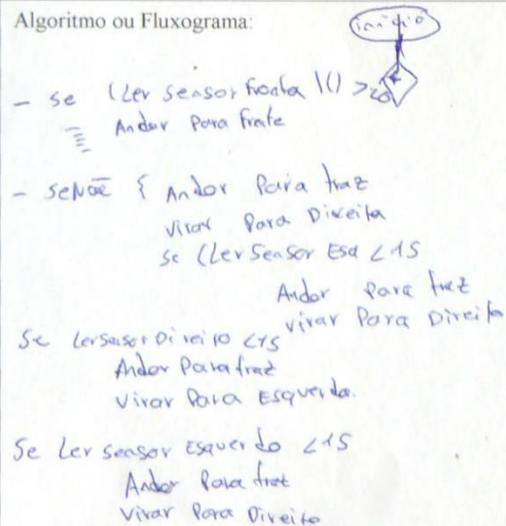 Algoritmo ou Fluxograma:
início
- Se (Ler Sensor Frontal () > 20
Andar Para frente
- SENÃO { Andar Para traz
Virar Para Direita
Se (Ler Sensor Esq < 15
Andar Para traz
Virar Para Direito
Se Ler Sensor Direito < 15
Andar Para traz
Virar Para Esquerda.
Se Ler sensor Esquerdo < 15
Andar Para traz
Virar Para Direito